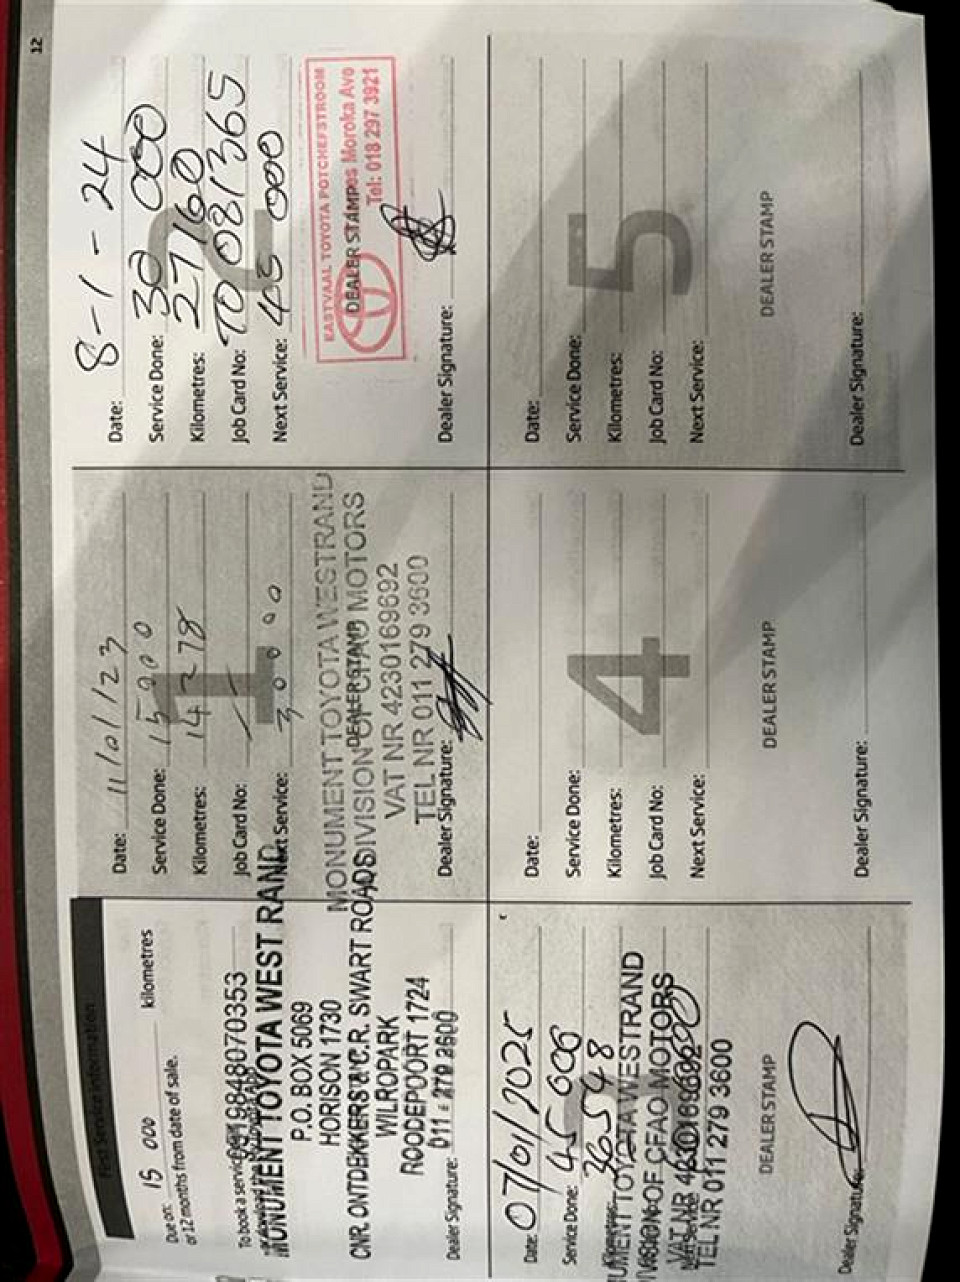 12
First Service Information
Due on: 15 000 kilometres
or 12 months from date of sale.
To book a service
0519848070353
MONUMENT TOYOTA WEST RAND
P.O. BOX 5069
HORISON 1730
CNR. ONTDEKKERS & C.R. SWART ROADS
WILROPARK
ROODEPOORT 1724
011 279 3600
Dealer Signature:
1
Date: 11/01/23
Service Done: 15 000
Kilometres: 14 278
Job Card No:
Next Service: 30 000
MONUMENT TOYOTA WESTRAND
A DIVISION OF CFAO MOTORS
DEALER STAMP
VAT NR 4230169692
TEL NR 011 279 3600
Dealer Signature:
2
Date: 8-1-24
Service Done: 30 000
Kilometres: 27160
Job Card No: TO 081365
Next Service: 45 000
KASTVAAL TOYOTA POTCHEFSTROOM
DEALER STAMP
Moroka Ave
Tel: 018 297 3921
Dealer Signature:
Date: 07/01/2025
Service Done: 45 000
Kilometres: 36548
MONUMENT TOYOTA WESTRAND
DIVISION OF CFAO MOTORS
VAT NR 4230169692
TEL NR 011 279 3600
DEALER STAMP
Dealer Signature:
4
Date:
Service Done:
Kilometres:
Job Card No:
Next Service:
DEALER STAMP
Dealer Signature:
5
Date:
Service Done:
Kilometres:
Job Card No:
Next Service:
DEALER STAMP
Dealer Signature: